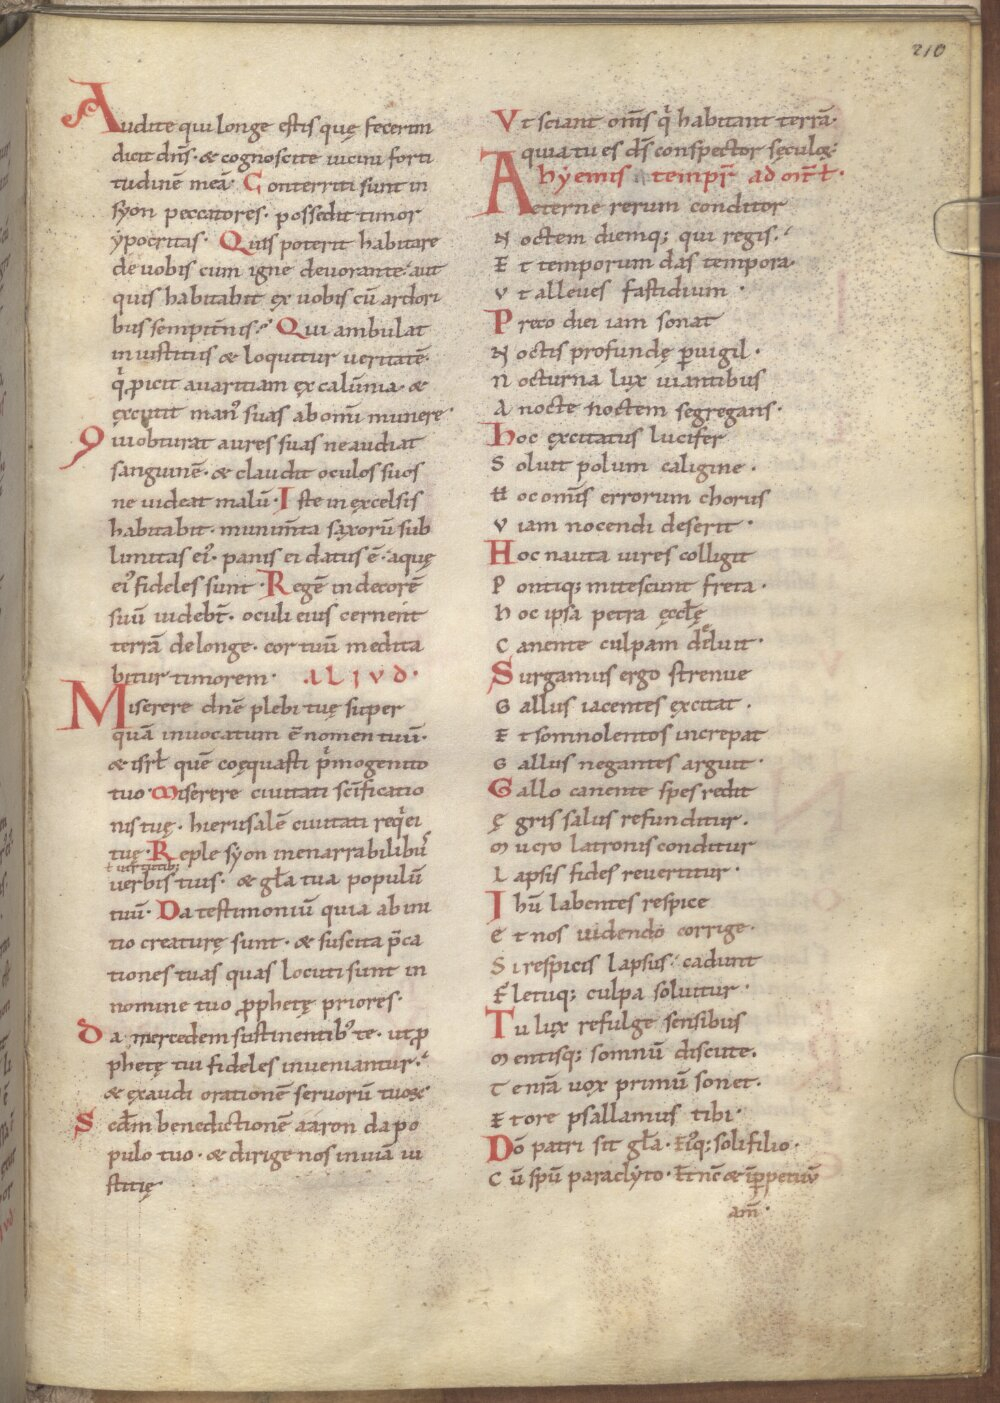 210
Audite qui longe estis quę fecerim
dicit dn̄s. & cognoscite uicini forti
tudinē meā. Conterriti sunt in
syon peccatores. possedit timor
ẏpocritas. Quis poterit habitare
de uobis cum igne deuorante. aut
quis habitabit ex uobis cū ardori
bus sempit̄nis. Qui ambulat
in iustitiis & loquitur ueritatē.
qͥ ꝓicit auaritiam ex calūnia. &
excutit manꝰ suas ab omī munere.
Qui obturat aures suas ne audiat
sanguinē. & claudit oculos suos
ne uideat malū. Iste in excelsis
habitabit. munim̄ta saxorū sub
limitas eiꝰ. panis ei datus ē. aquę
eiꝰ fideles sunt. Regē in decorē
suū uidebt̄. oculi eius cernent
terrā de longe. cor tuū medita
bitur timorem. ALIVD.
Miserere dnē plebi tuę super
quā inuocatum ē nomen tuū.
& isrl̄ quē coęquasti pͥmogenito
tuo. Miserere ciuitati sc̄ificatio
nis tuę. hierusalē ciuitati reqͥei
tuę. Reple syon inenarrabilibꝰ
ł uirtutib;
uerbis tuis. & gl̄a tua populū
tuū. Da testimoniū quia ab ini
tio creaturę sunt. & suscita p̄ca
tiones tuas quas locuti sunt in
nomine tuo ꝓphetę priores.
Da mercedem sustinentibꝰ te. ut ꝓ
phetę tui fideles inueniantur.
& exaudi orationē seruorū tuoꝝ
Scd̄m benedictionē aaron da po
pulo tuo. & dirige nos in uiā iu
stitię
Vt sciant om̄s qͥ habitant terrā.
quia tu es ds̄ conspector sęculoꝝ.
hyemis tempr̄ ad oct̄ł.
Aeterne rerum conditor
Noctem diemq; qui regis.
Et temporum das tempora.
Vt alleues fastidium.
Preco diei iam sonat
Noctis profundę ꝑuigil.
Nocturna lux uiantibus
A nocte noctem segregans.
Hoc excitatus lucifer
Soluit polum caligine.
Hoc om̄is errorum chorus
Viam nocendi deserit.
Hoc nauta uires colligit
Pontiq; mitescunt freta.
Hoc ipsa petra ęccl̄ę
Canente culpam deluit.
Surgamus ergo strenue
Gallus iacentes excitat.
Et somnolentos increpat
Gallus negantes arguit.
Gallo canente spes redit
Ęgris salus refunditur.
Mucro latronis conditur
Lapsis fides reuertitur.
Ihū labentes respice
Et nos uidendo corrige.
Si respicis lapsus cadunt
Fletuq; culpa soluitur.
Tu lux refulge sensibus
Mentisq; somnū discute.
Te nr̄a uox primū sonet.
Et ore psallamus tibi.
Dō patri sit gl̄a. Eiꝰq; soli filio.
Cū spū paraclyto. Et nc̄ & iꝑpetuū
am̄.